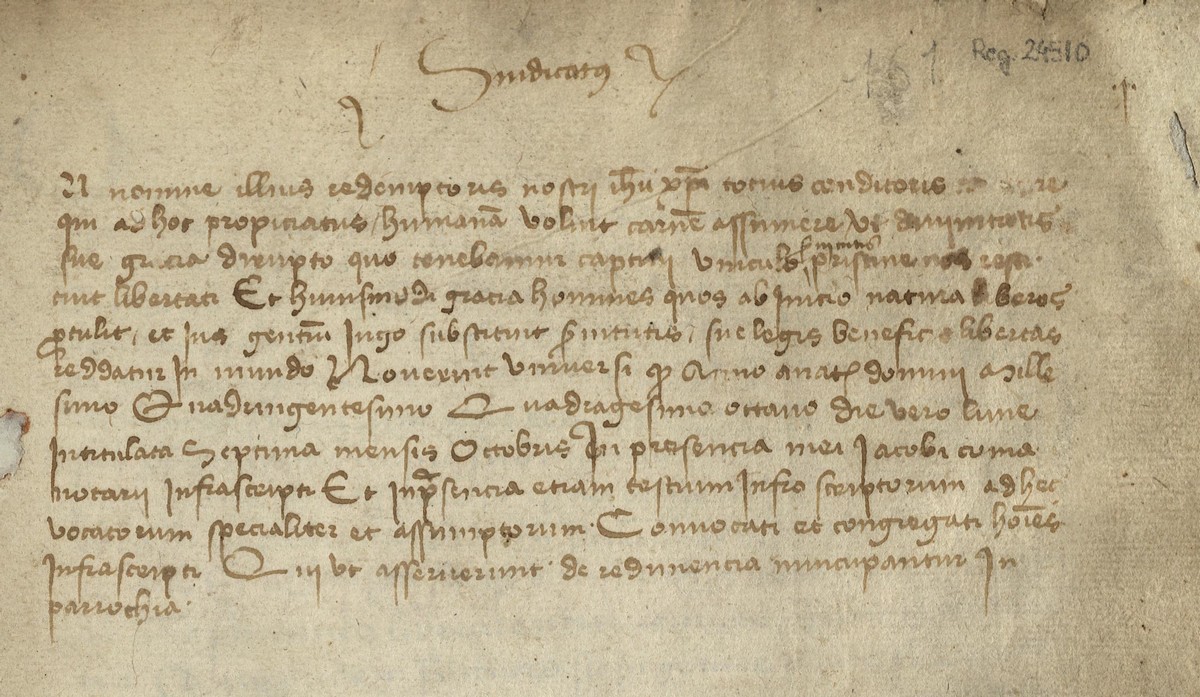 Sindicatus
161 Reg. 24510
In nomine illius redemptoris nostri ihũ xp̃i tocius conditoris
qui ad hoc propiciatus humanã voluit carnẽ assumere ut divinitatis
sue gracia dirupto quo tenebamur captivi vinculo servitutis pristine nos resti
tuit libertati Et huiusmodi gracia homines quos ab Inicio natura liberos
ꝓtulit, et ius gentiũ Iugo substituit s̃vitutis, sue legis beneficio libertas
reddatur In mundo Noverint universi ꝙ Anno a natꝭ domini Mille
simo Quadringentesimo Quadragesimo octavo die vero lune
Intitulata Septima mensis Octobris In presencia mei Jacobi coma
notarii Infrascripti Et In p̃sencia etiam testium Infrascriptorum ad hec
vocatorum specialiter et assumptorum. Convocati et congregati hoĩes
Infrascripti Qui ut asseruerunt de redimencia nuncupantur In
parrochia